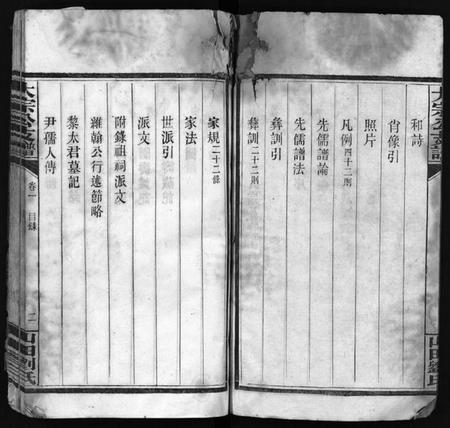 和詩
肖像引
照片
凡例四十二則
先儒譜論
先儒譜法
彝訓引
彝訓二十二則
家規二十二條
家法
世派引
派文
附錄祖祠派文
雜翰公行述節略
黎太君墓記
尹孺人傳
大宗公支譜
卷一 目錄
二
山田劉氏